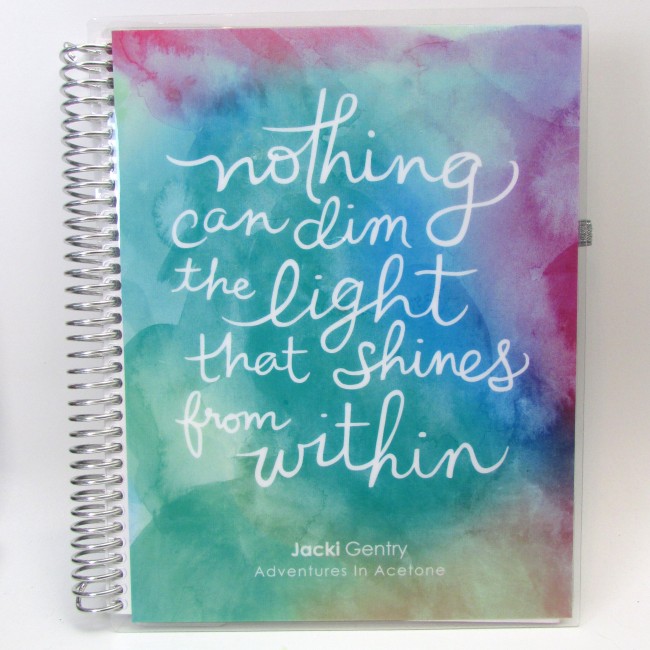 nothing
can dim
the light
that shines
from within
Jacki Gentry
Adventures In Acetone